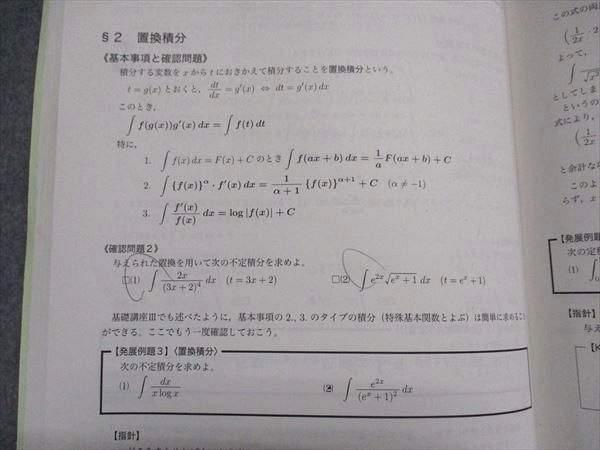 §2 置換積分
《基本事項と確認問題》
積分する変数を x から t におきかえて積分することを置換積分という。
t = g(x) とおくと, dt/dx = g′(x) ⇔ dt = g′(x) dx
このとき,
∫ f(g(x))g′(x) dx = ∫ f(t) dt
特に,
1. ∫ f(x) dx = F(x) + C のとき ∫ f(ax + b) dx = 1/a F(ax + b) + C
2. ∫ {f(x)}^α · f′(x) dx = 1/(α + 1) {f(x)}^(α+1) + C (α ≠ −1)
3. ∫ f′(x)/f(x) dx = log |f(x)| + C
《確認問題2》
与えられた置換を用いて次の不定積分を求めよ。
□(1) ∫ 2x/(3x + 2)^4 dx (t = 3x + 2) □(2) ∫ e^(2x) √(e^x + 1) dx (t = e^x + 1)
基礎講座Ⅲでも述べたように, 基本事項の 2., 3. のタイプの積分 (特殊基本関数とよぶ) は簡単に求めるこ
ができる。ここでもう一度確認しておこう。
【発展例題3】〈置換積分〉
次の不定積分を求めよ。
(1) ∫ dx/(x log x) (2) ∫ e^(2x)/(e^x + 1)^2 dx
【指針】
この式の両
(1/2x · 2
よって,
∫ /√x²
としてしま
というの
式により,
(1/2x
と余計な
このよ
らず, x
【発展例題
次の定
(1) ∫
【指針】
与え
【K